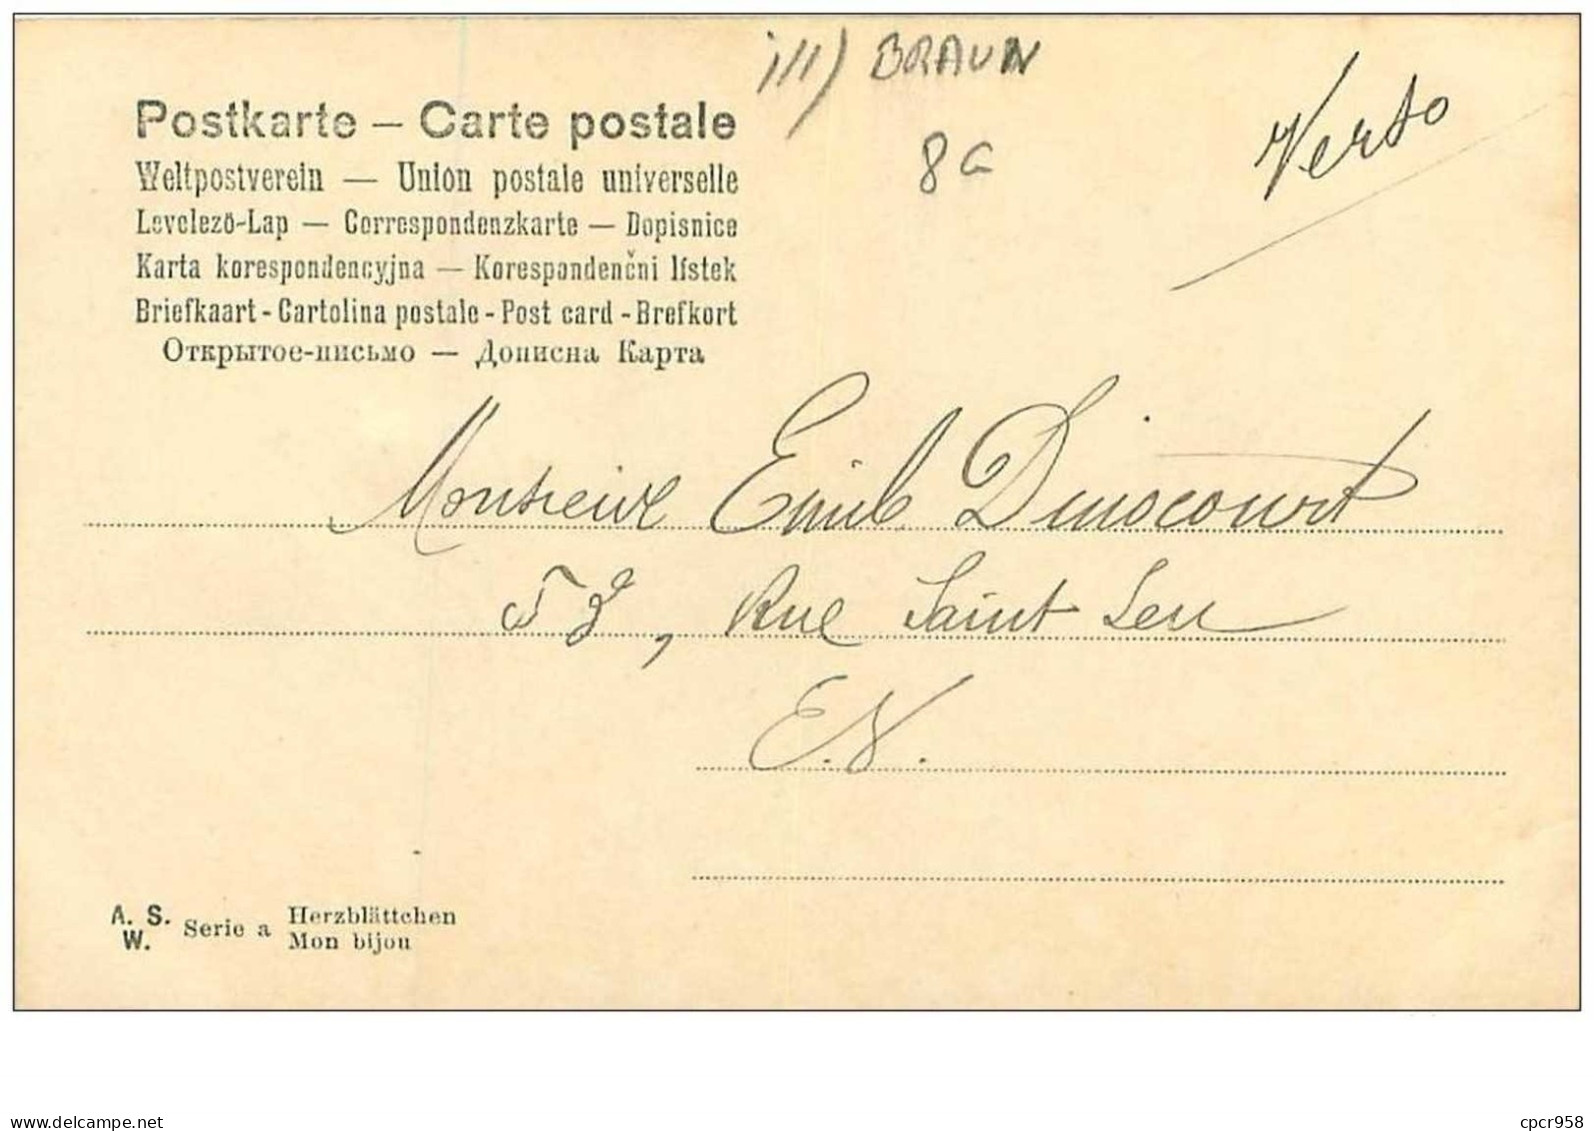 ill) BRAUN
8G
Verso
Postkarte – Carte postale
Weltpostverein — Union postale universelle
Levelező-Lap — Correspondenzkarte — Dopisnice
Karta korespondencyjna — Korespondenční lístek
Briefkaart - Cartolina postale - Post card - Brefkort
Открытое-письмо — Дописна Карта
Monsieur Emile Dinocourt
53, Rue Saint Leu
E.V.
A. S. W. Serie a Herzblättchen
Mon bijou
cpcr958